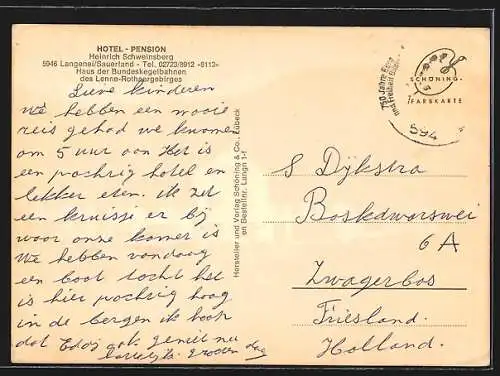 HOTEL - PENSION
Heinrich Schweinsberg
5946 Langenei/Sauerland - Tel. 02723/8912 »8113«
Haus der Bundeskegelbahnen
des Lenne-Rothaargebirges
Lieve kinderen
We hebben een mooie
reis gehad we kwamen
om 5 uur aan Het is
een prachtig hotel en
lekker eten. ik zet
een kruisje er bij
waar onze kamer is
We hebben vandaag
een boot tocht het
is hier prachtig hoog
in de bergen ik hoop
dat Eddy ook geniet nu
hartelijke groeten dag
Hersteller und Verlag Schöning & Co., Lübeck
Bestellnr. Langn 1-1
750 Jahre
und Freiheit
594
SCHÖNING
FARBKARTE
S Dijkstra
Boskdwarswei
6 A
Zwagerbos
Friesland.
Holland.